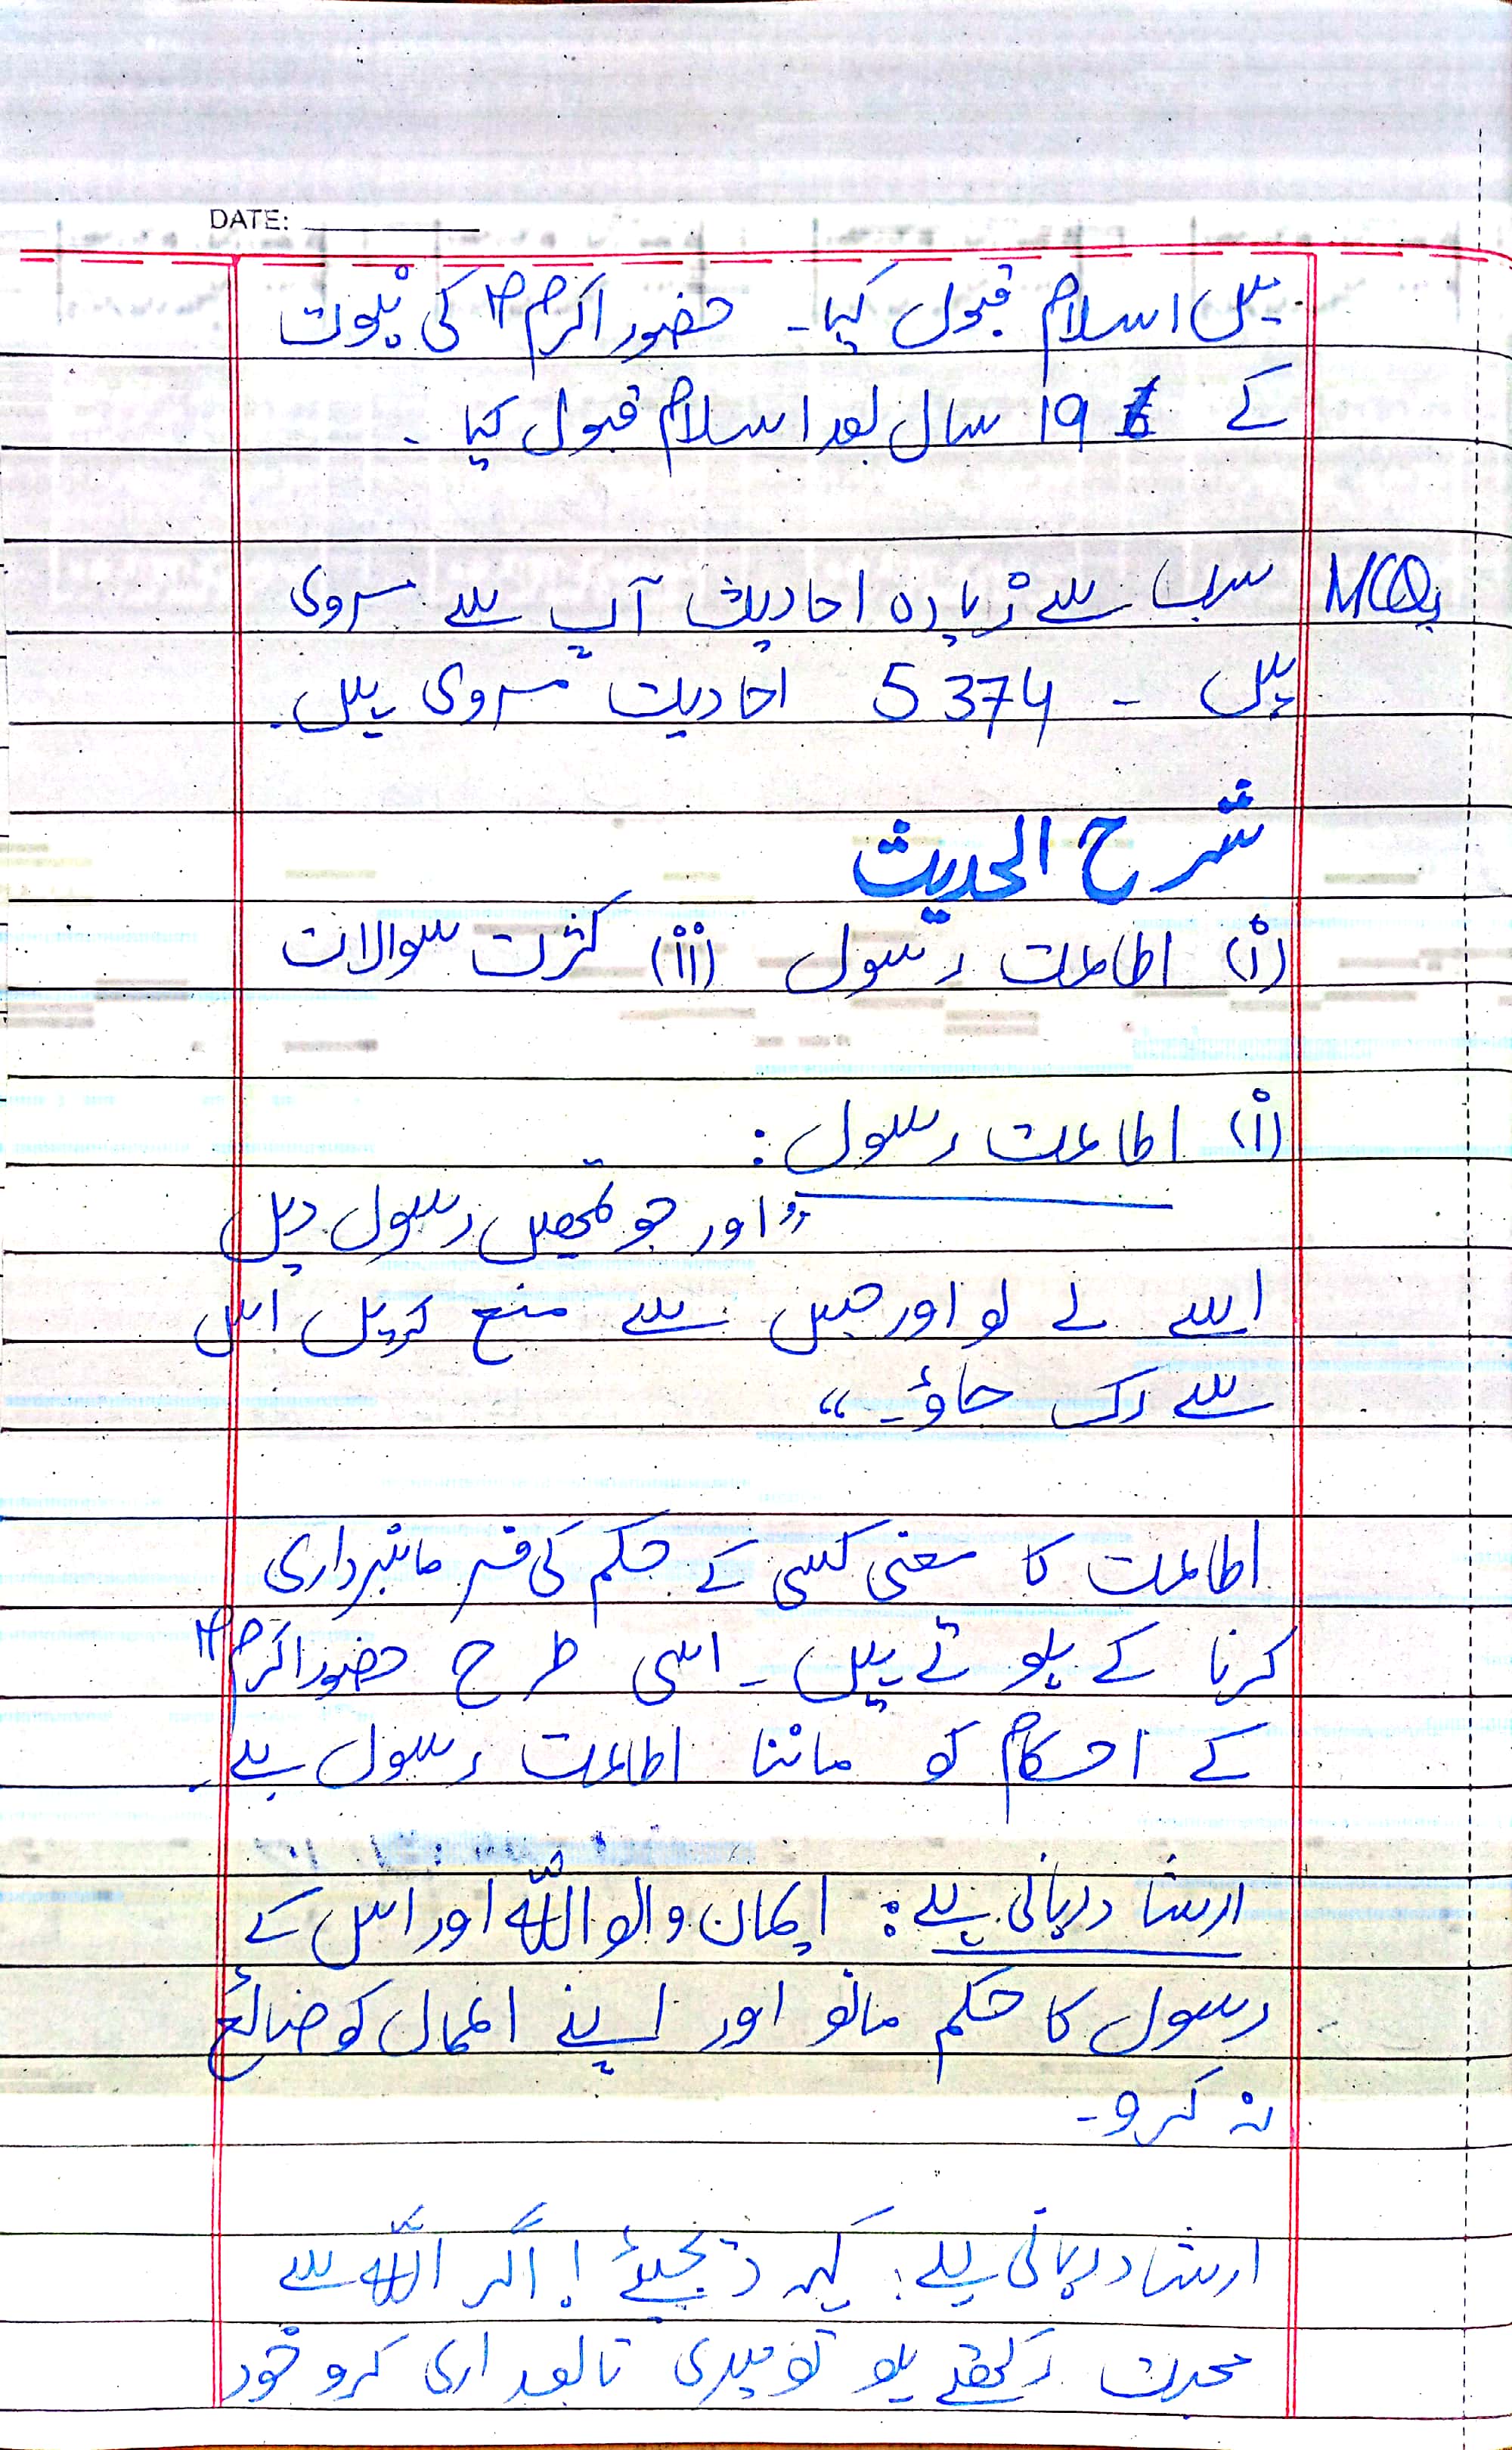 DATE:
میں اسلام قبول کیا۔ حضور اکرمؐ کی نبوت
کے 19 سال بعد اسلام قبول کیا۔
MCQs سب سے زیادہ احادیث آپ سے مروی
ہیں۔ 5374 احادیث مروی ہیں۔
شرح الحدیث
(i) اطاعت رسول (ii) کثرت سوالات
(i) اطاعت رسول:
"اور جو تمھیں رسول دیں
اسے لے لو اور جس سے منع کریں اس
سے رک جاؤ۔"
اطاعت کا معنی کسی کے حکم کی فرمانبرداری
کرنا کے ہوتے ہیں۔ اسی طرح حضور اکرمؐ
کے احکام کو ماننا اطاعت رسول ہے۔
ارشاد ربانی ہے: ایمان والو اللّٰہ اور اس کے
رسول کا حکم مانو اور اپنے اعمال کو ضائع
نہ کرو۔
ارشاد ربانی ہے: کہہ دیجئیے! اگر اللّٰہ سے
محبت رکھتے ہو تو میری تابعداری کرو خود